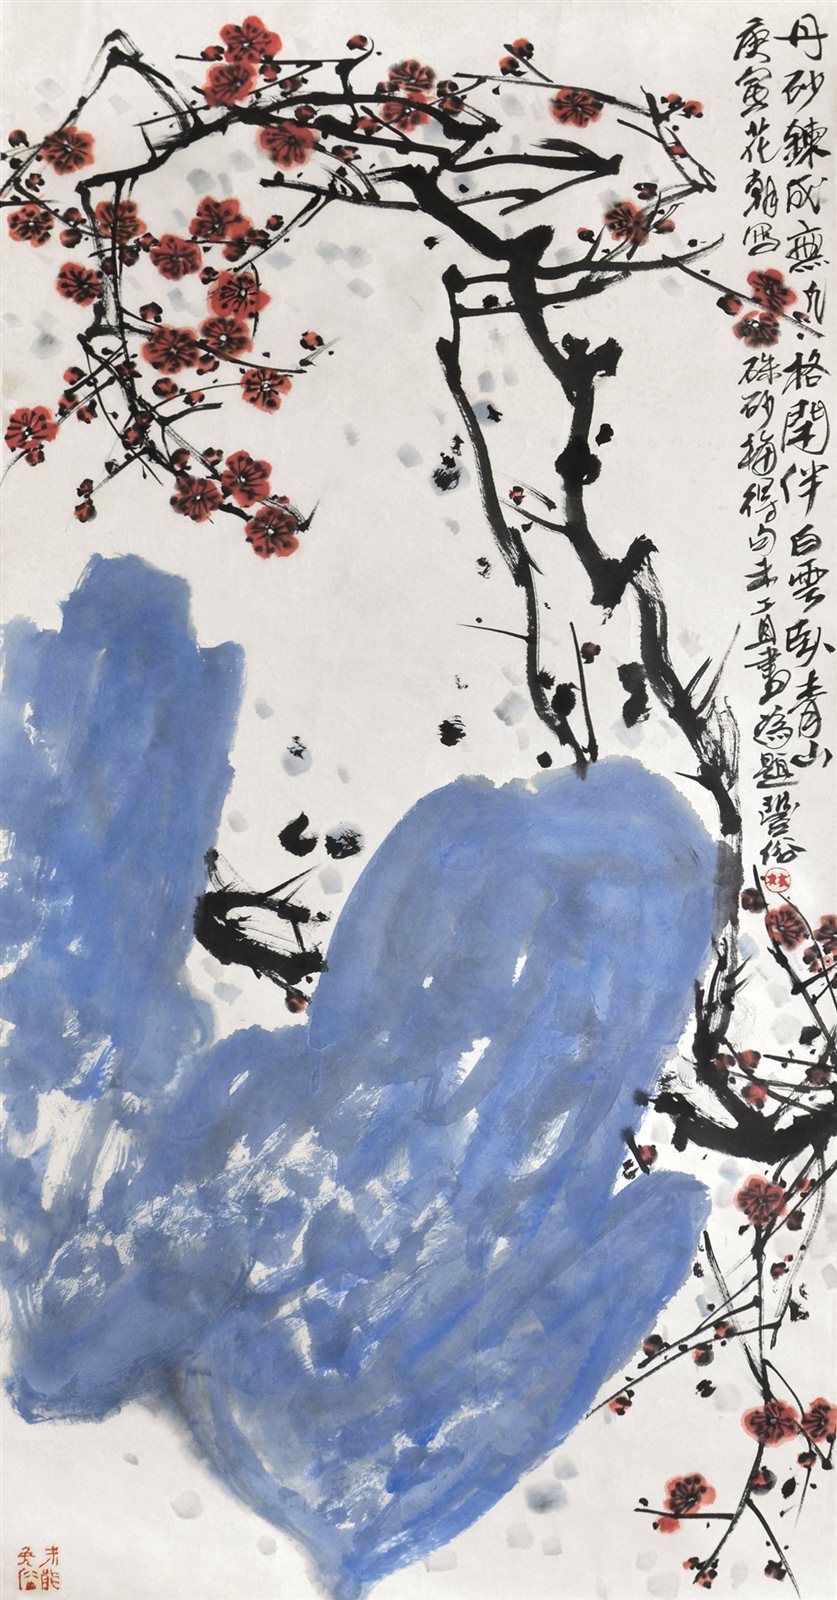 丹砂鍊成應九格閒伴白雲臥青山
庚寅花朝寫
硃砂梅得句未工且書為題 醫俗
林
未能免俗